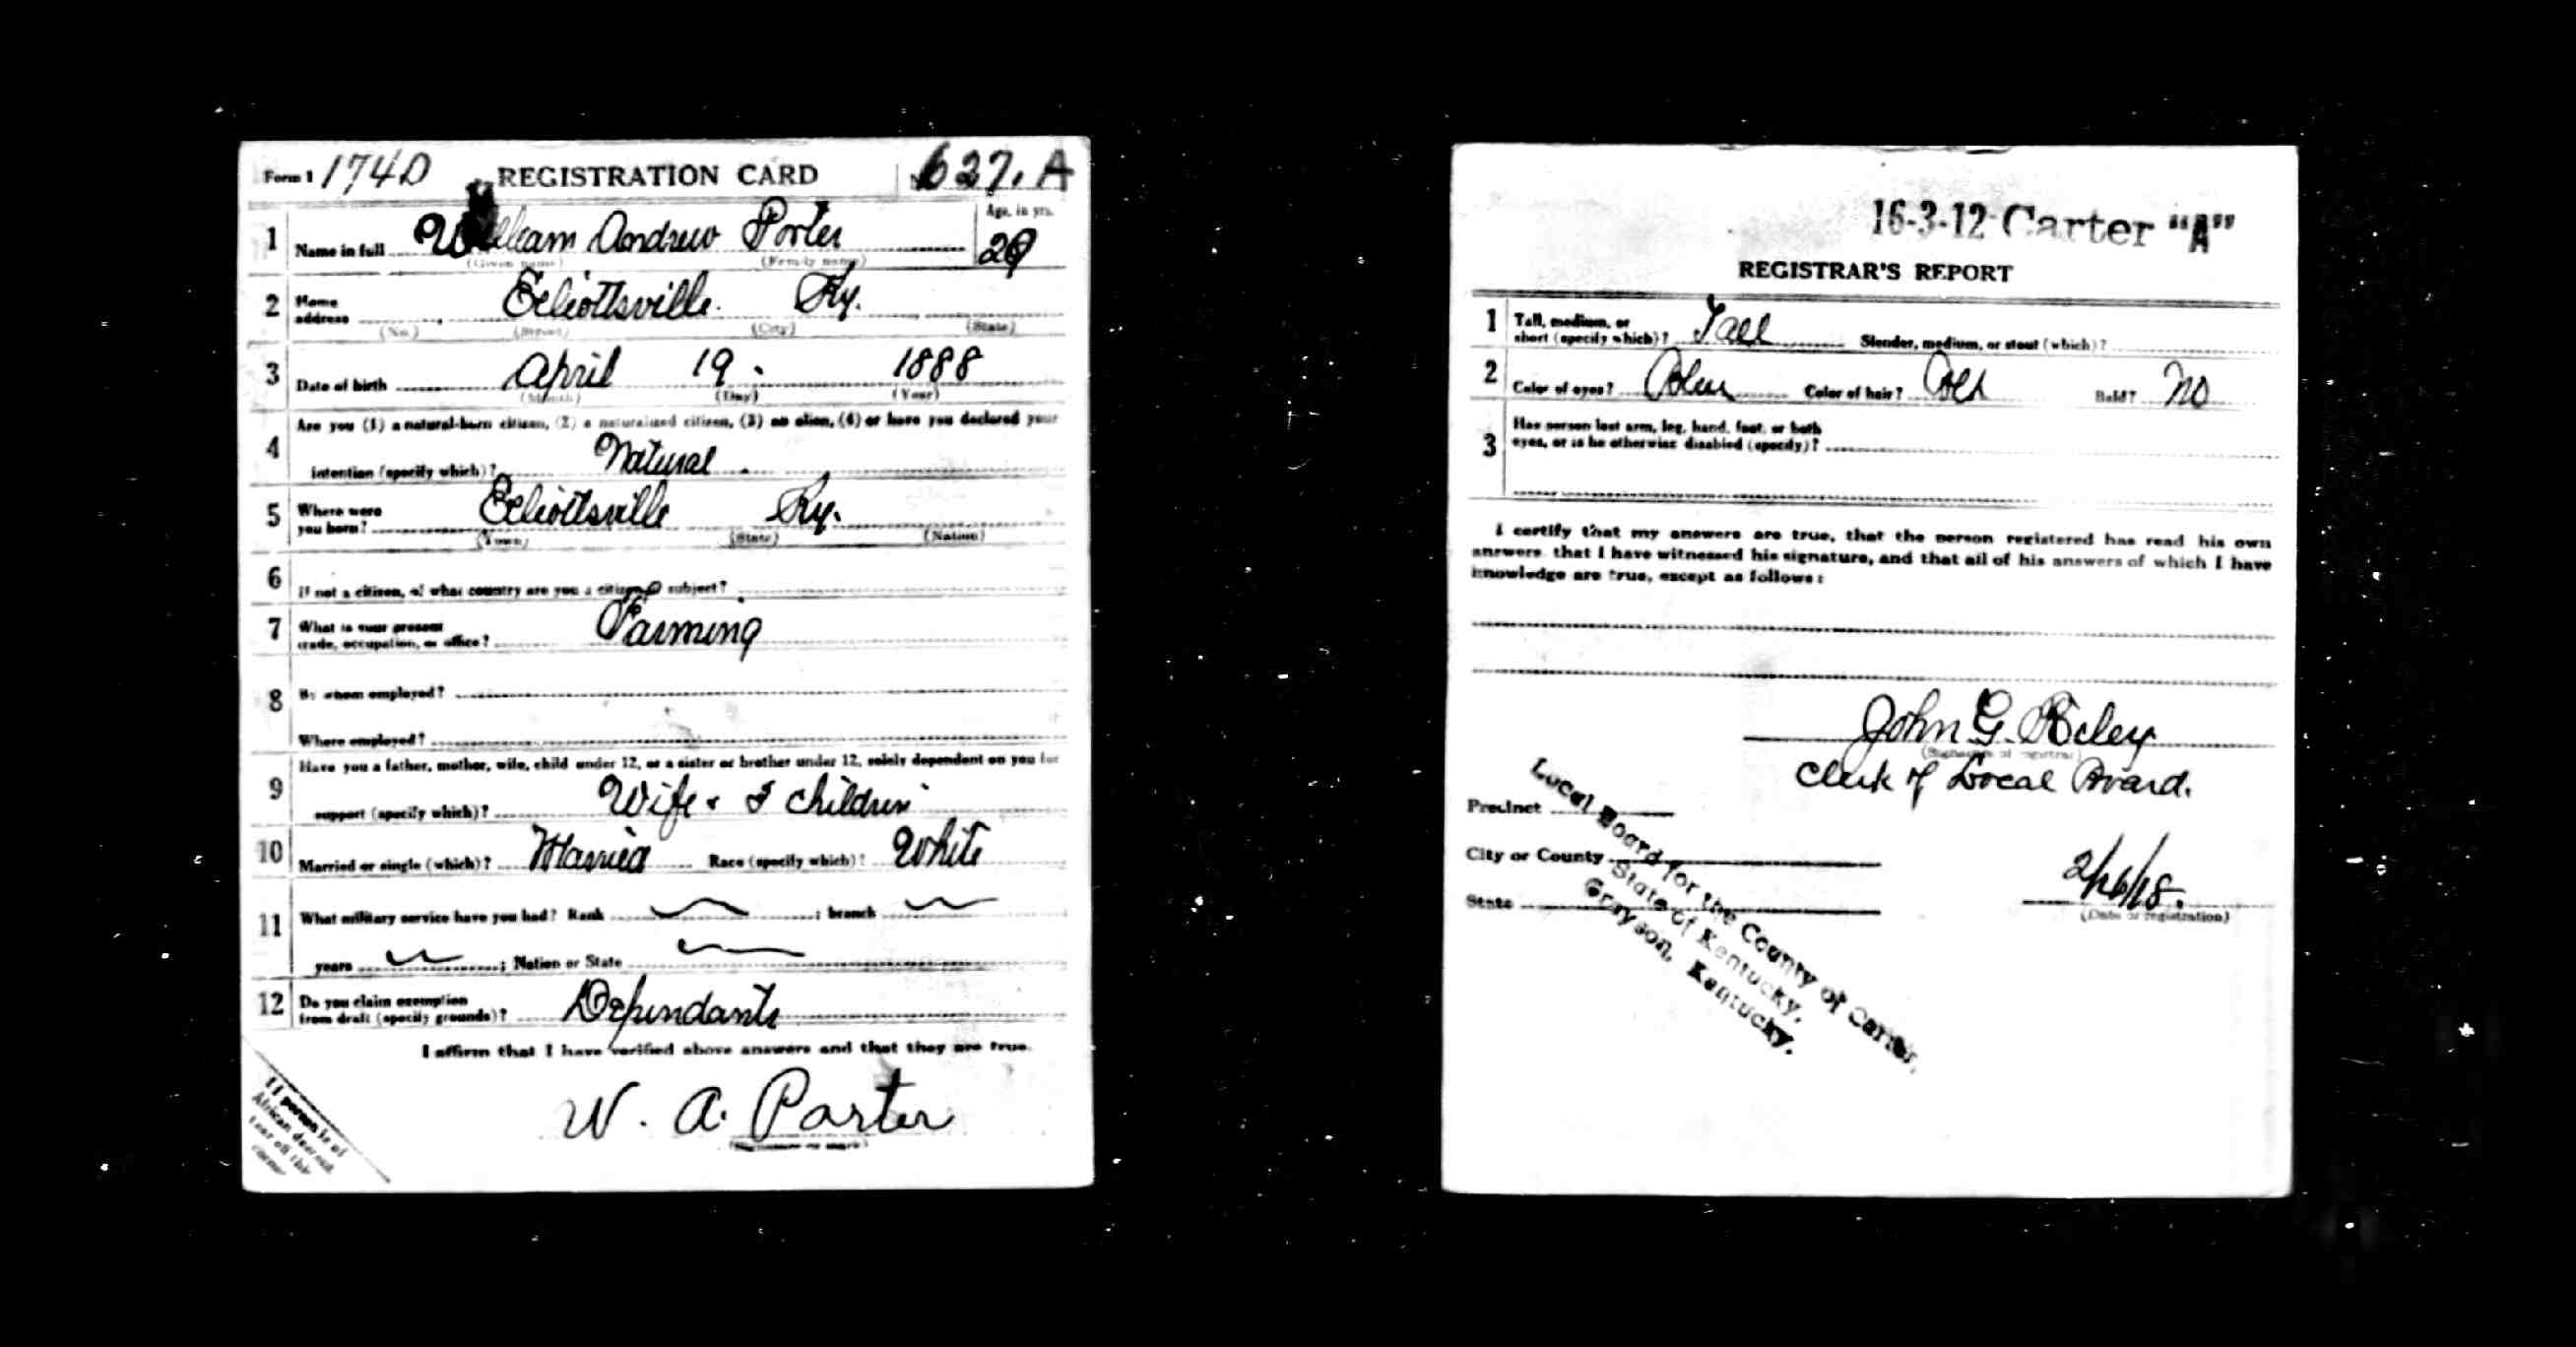 Form 1 174D REGISTRATION CARD No. 627. A
1 Name in full William Andrew Porter Age, in yrs.
(Given name) (Family name)
2 Home address Elliottsville. Ky.
(No.) (Street) (City) (State)
3 Date of birth April 19. 1888
(Month) (Day) (Year)
4 Are you (1) a natural-born citizen, (2) a naturalized citizen, (3) an alien, (4) or have you declared your
intention (specify which)? Natural.
5 Where were you born? Elliottsville Ky.
(Town) (State) (Nation)
6 If not a citizen, of what country are you a citizen or subject?
7 What is your present trade, occupation, or office? Farming
8 By whom employed?
Where employed?
9 Have you a father, mother, wife, child under 12, or a sister or brother under 12, solely dependent on you for
support (specify which)? Wife & children
10 Married or single (which)? Married Race (specify which)? White
11 What military service have you had? Rank ; branch
years ; Nation or State
12 Do you claim exemption from draft (specify grounds)? Dependants
I affirm that I have verified above answers and that they are true.
W. A. Porter
(Signature or mark)
If person is of
African descent,
tear off this
corner.
16-3-12 Carter "A"
REGISTRAR'S REPORT
1 Tall, medium, or short (specify which)? Tall Slender, medium, or stout (which)?
2 Color of eyes? Blue Color of hair? Bald? No
3 Has person lost arm, leg, hand, foot, or both
eyes, or is he otherwise disabled (specify)?
I certify that my answers are true, that the person registered has read his own
answers, that I have witnessed his signature, and that all of his answers of which I have
knowledge are true, except as follows:
John G.
(Signature of registrar)
Clerk of Local Board.
Precinct
City or County
State
2/26/18.
(Date of registration)
Local Board for the County of Carter,
State of Kentucky,
Grayson, Kentucky.